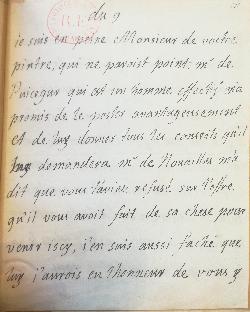 du 9
je suis en peine Monsieur de vostre
pintre, qui ne paroist point, mr de
Puisegur qui est un homme effectif m'a
promis de le poster avantageusement
et de luy donner tous les conseils qu'il
luy demandera mr de Noailles m'a
dit que vous l'aviez refusé sur l'offre
qu'il vous avoit fait de sa chese pour
venir icy, j'en suis aussi faché que
luy j'aurois eu l'honneur de vous y